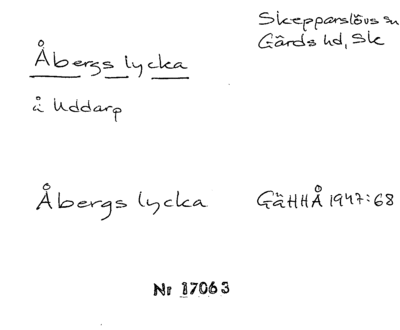 Skepparslövs sn
Gärds hd, Sk
Åbergs lycka
å Uddarp
Åbergs lycka
GäHHÅ 1947:68
Nr 17063